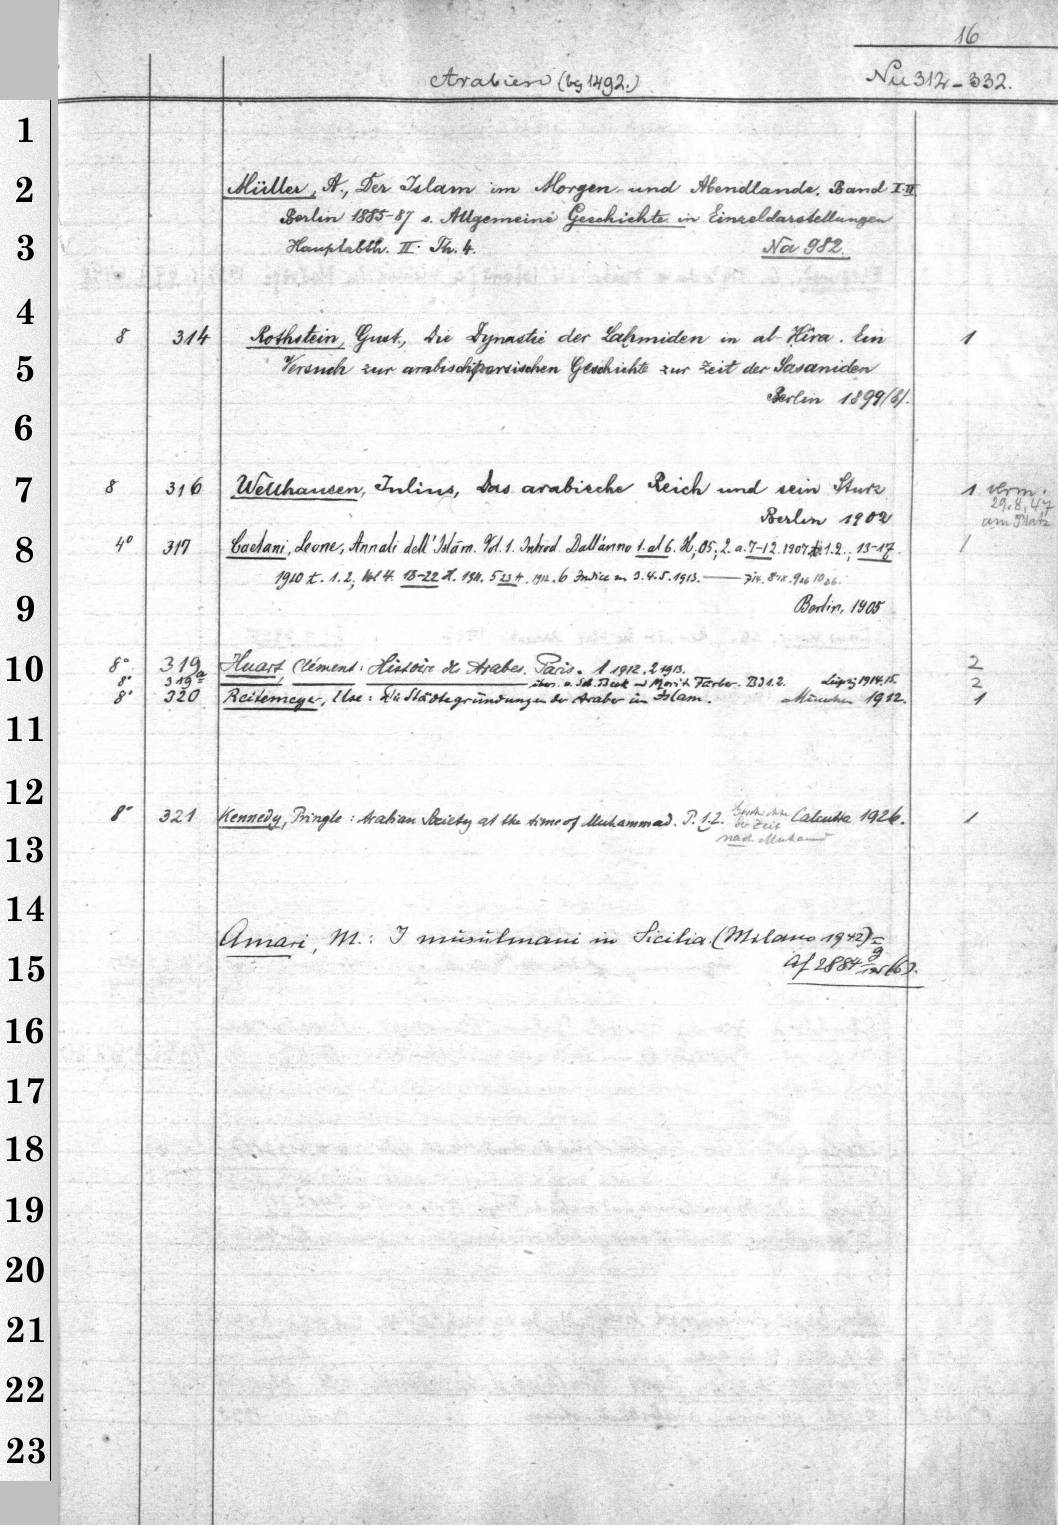 16
Arabien (bis 1492.) Nu 312-332.
1
2 Müller, A., Der Islam im Morgen- und Abendlande. Band I-II
Berlin 1885-87 s. Allgemeine Geschichte in Einzeldarstellungen
3 Hauptabth. II. Th. 4. Na 982.
4
8 314 Rothstein, Gust., Die Dynastie der Lahmiden in al-Hîra. Ein 1
5 Versuch zur arabischpersischen Geschichte zur Zeit der Sasaniden
Berlin 1899/8/.
6
7 8 316 Wellhausen, Julius, Das arabische Reich und sein Sturz 1 verm.
29.8.47
Berlin 1902 am Platz
8 4° 317 Caetani, Leone, Annali dell' Islâm. Vol. 1. Introd. Dall'anno 1. al 6. H. 05; 2. a. 7-12. 1907 t. 1.2.; 13-17. 1
1910 t. 1. 2; Vol 4. 18-22 H. 1911. 5 23 H. 1912. 6 Indice 3. 4. 5. 1913.
9 Berlin, 1905
10 8° 319 Huart, Clément: Histoire des Arabes. Paris. 1 1912. 2 1913. 2
8° 319a übers. v. Seb. Beck und Moritz Färber. Bd 1.2. Leipzig 1914.15. 2
8° 320 Reitemeyer, Else: Die Städtegründungen der Araber im Islam. München 1912. 1
11
12
8° 321 Kennedy, Pringle: Arabian Society at the time of Muhammad. P. 1.2. Calcutta 1926. 1
der Zeit
nach
13
14
Amari, M.: I musulmani in Sicilia. (Milano 1942) =
15 Af 2884
16
17
18
19
20
21
22
23